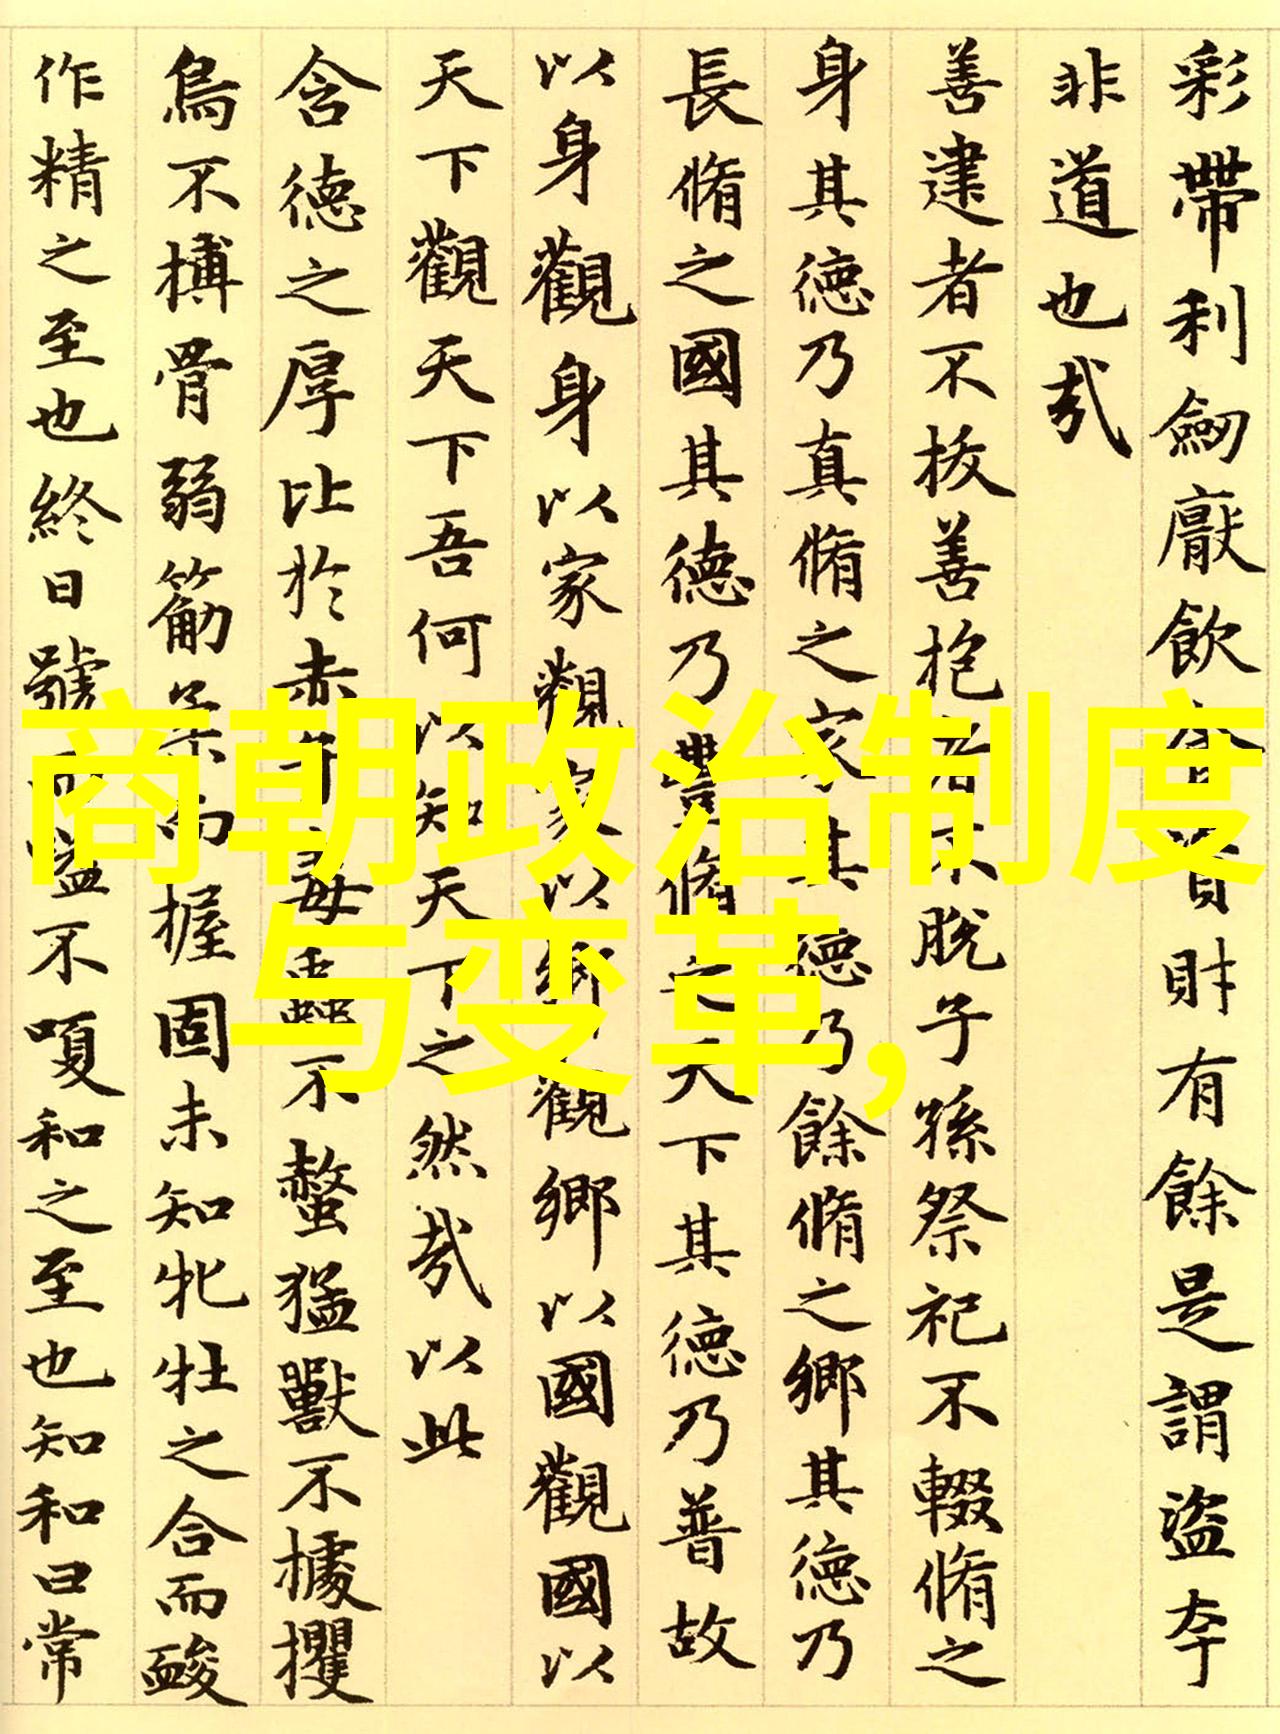 商朝政治制度
与变革,
彩帶利劒厭飲食資財有餘是謂盜夸
非道也哉
善建者不拔善抱者不脫子孫祭祀不輟脩之
身其德乃真脩之家其德乃餘脩之鄉其德乃
長脩之國其德乃豐脩之天下其德乃普故
以身觀身以家觀家以鄉觀鄉以國觀國以
天下觀天下吾何以知天下之然哉以此
含德之厚比於赤子毒蟲不螫猛獸不據攫
鳥不搏骨弱筋柔而握固未知牝牡之合而䘒
作精之至也終日號而嗌不嗄和之至也知和曰常